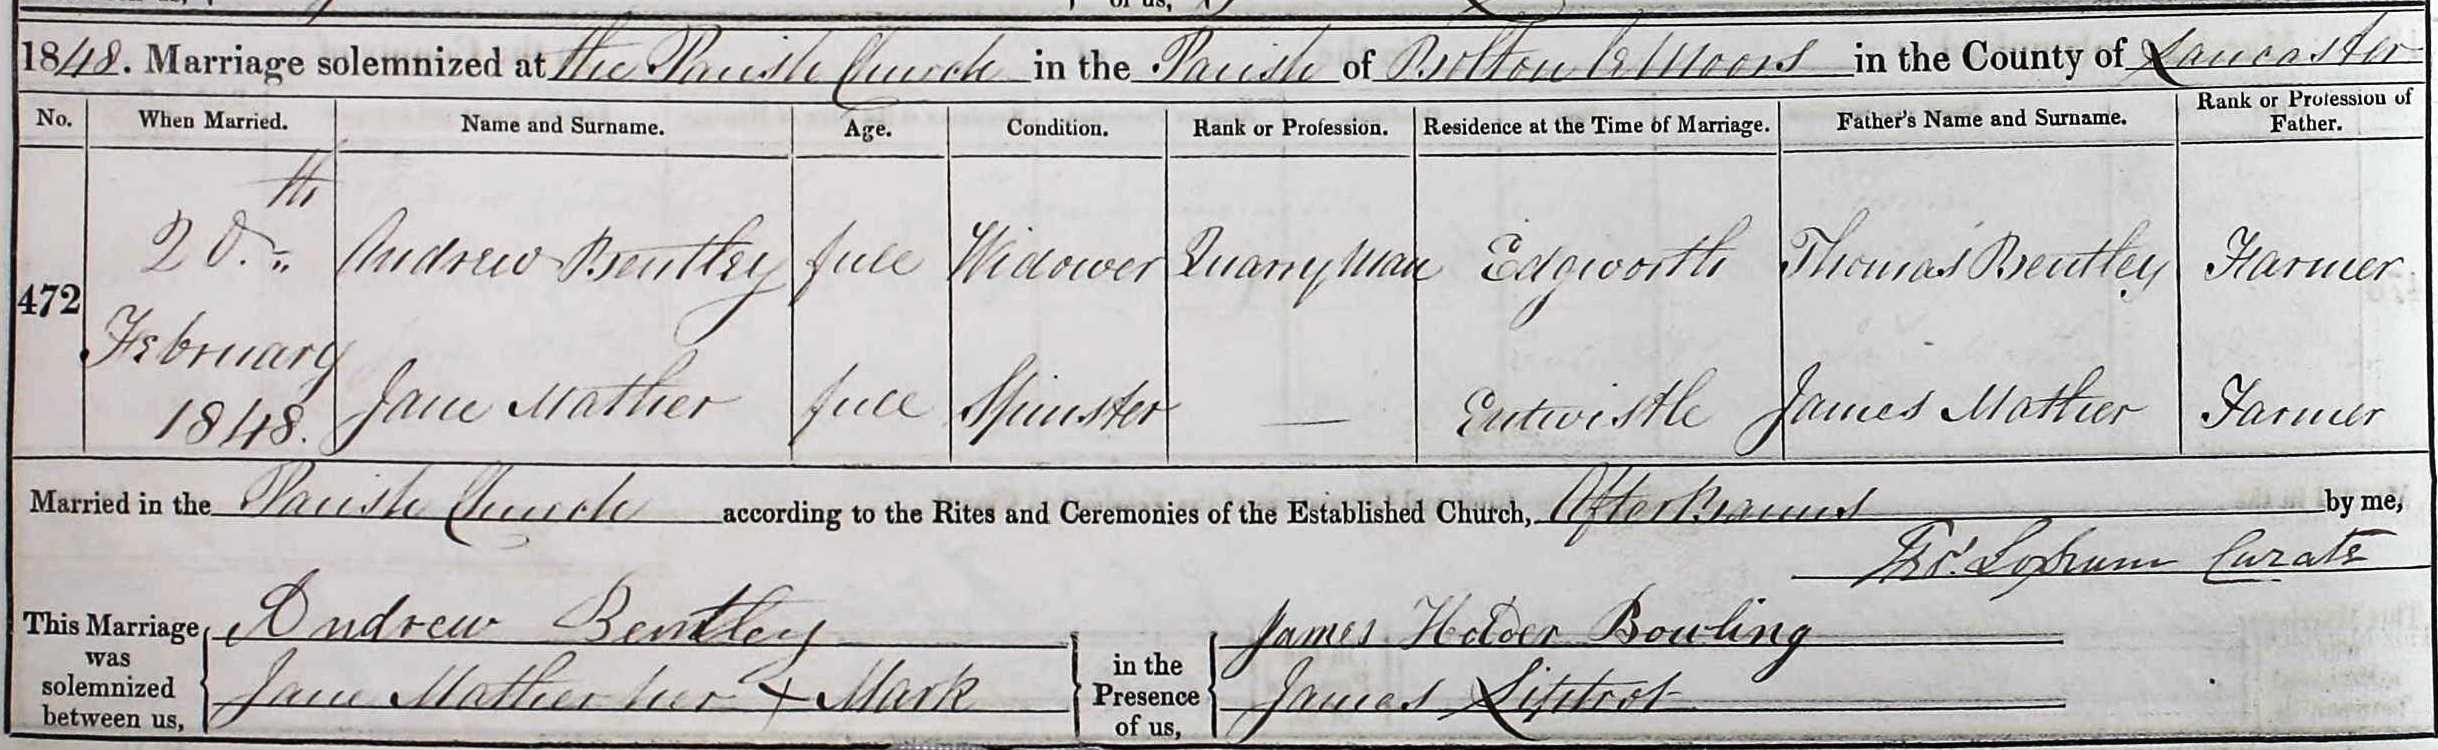 1848. Marriage solemnized at the Parish Church in the Parish of Bolton le Moors in the County of Lancaster
No. When Married. Name and Surname. Age. Condition. Rank or Profession. Residence at the Time of Marriage. Father's Name and Surname. Rank or Profession of Father.
472 20th February 1848. Andrew Bentley full Widower Quarry Man Edgworth Thomas Bentley Farmer
Jane Mather full Spinster — Entwistle James Mather Farmer
Married in the Parish Church according to the Rites and Ceremonies of the Established Church, After Banns by me,
Thos. Curate
This Marriage was solemnized between us, Andrew Bentley in the Presence of us, James Bowling
Jane Mather her X Mark James Liptrot